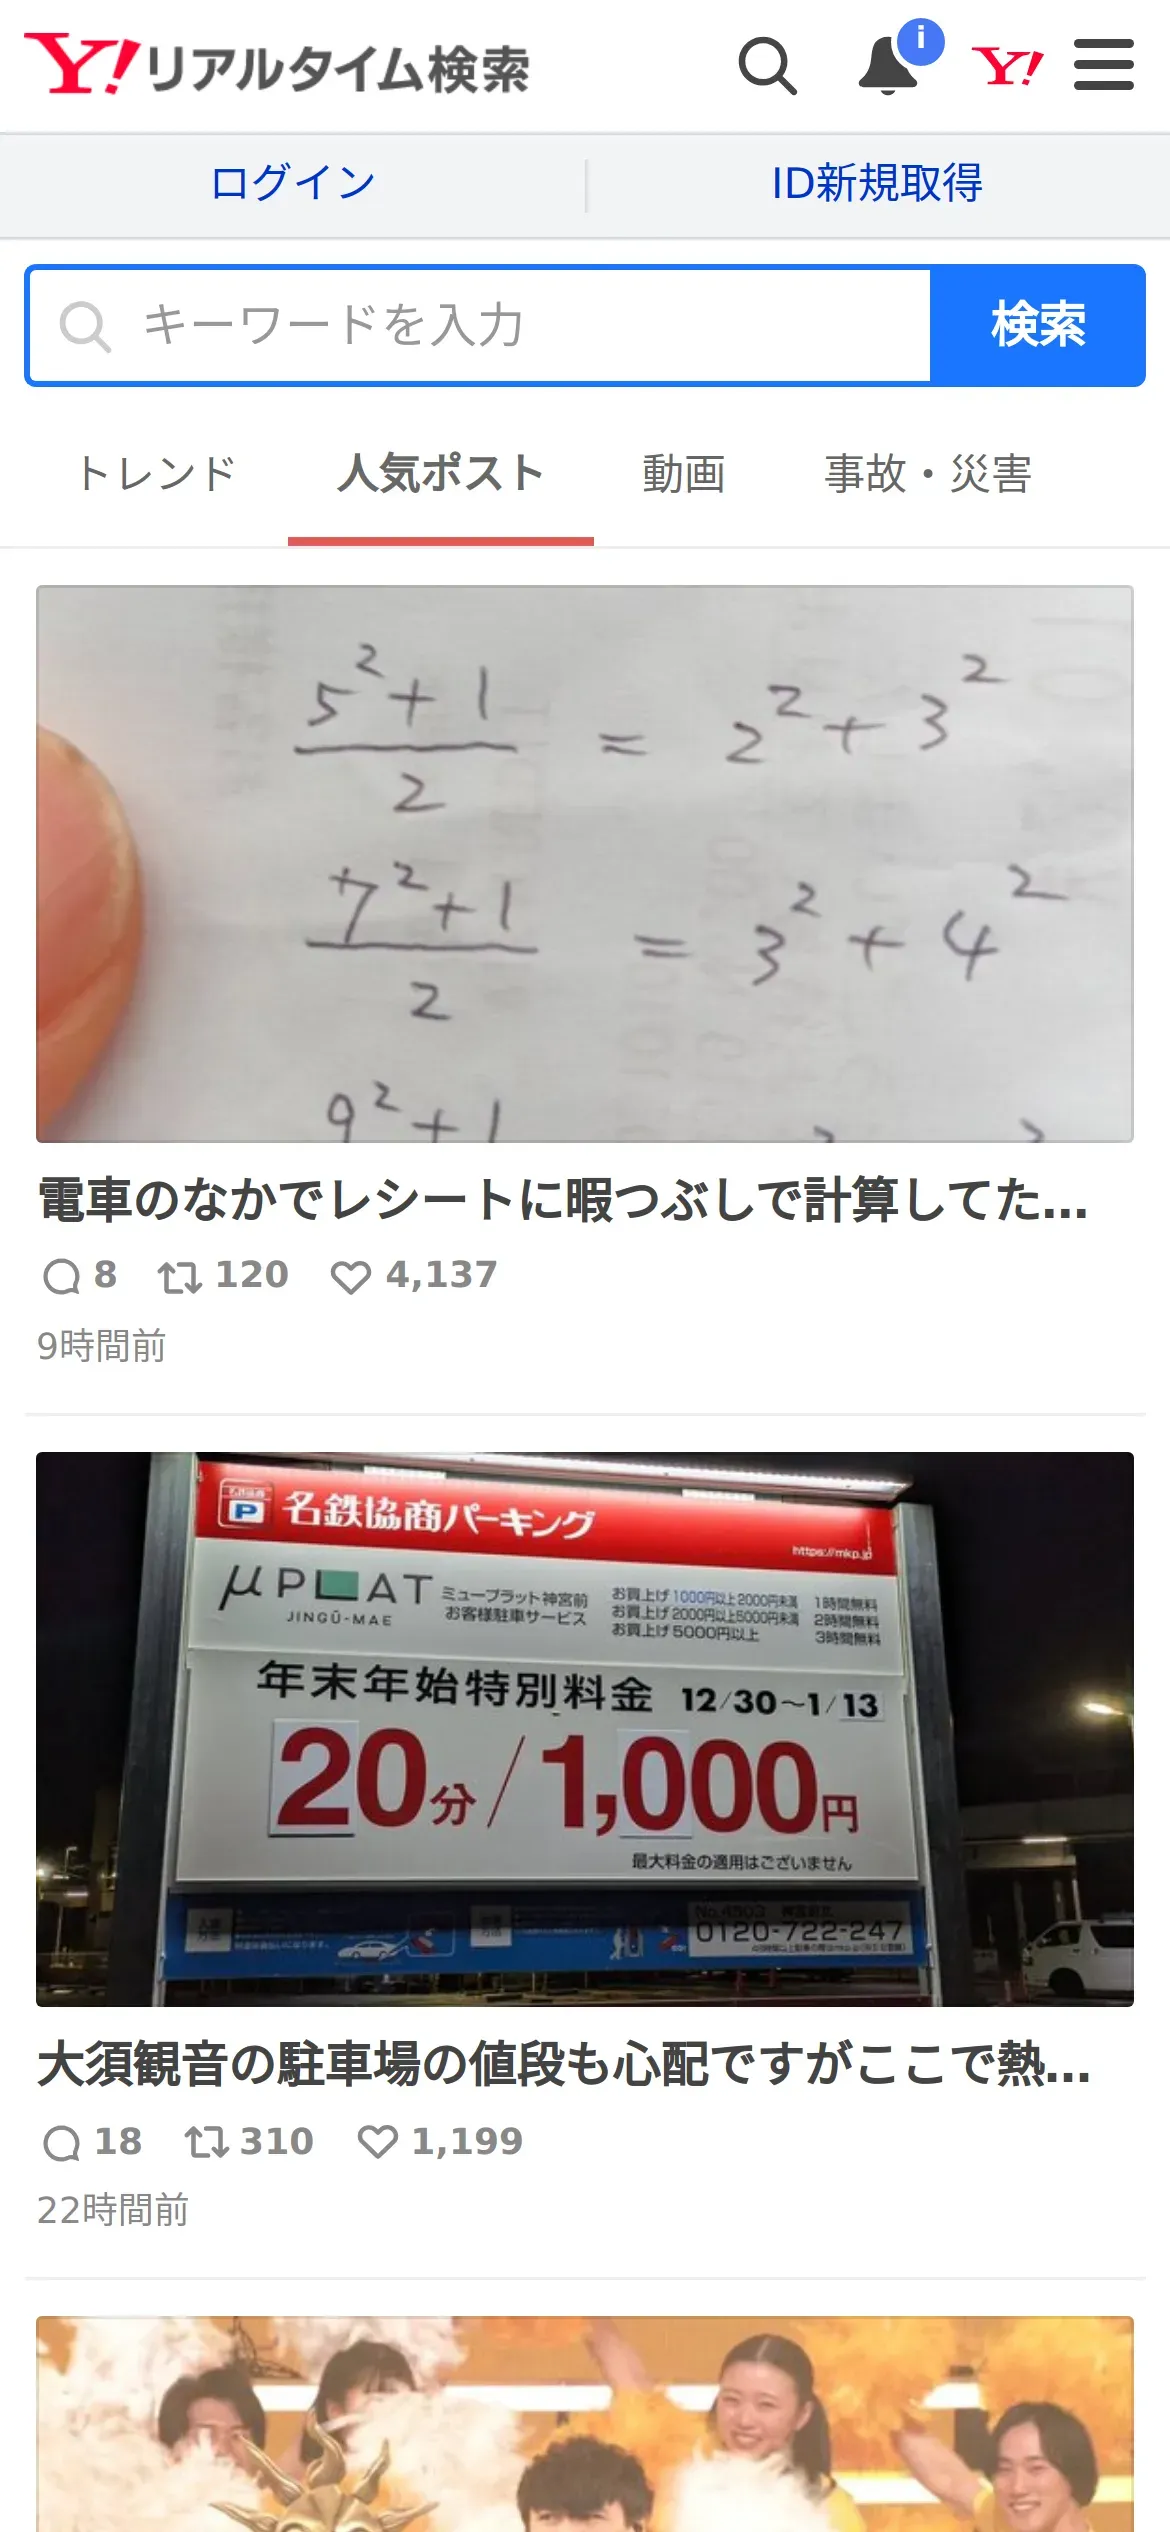 Y!リアルタイム検索
i
Y!
ログイン
ID新規取得
キーワードを入力
検索
トレンド
人気ポスト
動画
事故・災害
5²+1
2
= 2²+3²
7²+1
2
= 3²+4²
9²+1
電車のなかでレシートに暇つぶしで計算してた...
8 120 4,137
9時間前
P 名鉄協商パーキング
https://mkp.jp
μPLAT
JINGŪ-MAE
ミュープラット神宮前
お客様駐車サービス
お買上げ1000円以上2000円未満 1時間無料
お買上げ2000円以上5000円未満 2時間無料
お買上げ5000円以上 3時間無料
年末年始特別料金 12/30~1/13
20分/1,000円
最大料金の適用はございません
0120-722-247
大須観音の駐車場の値段も心配ですがここで熱...
18 310 1,199
22時間前